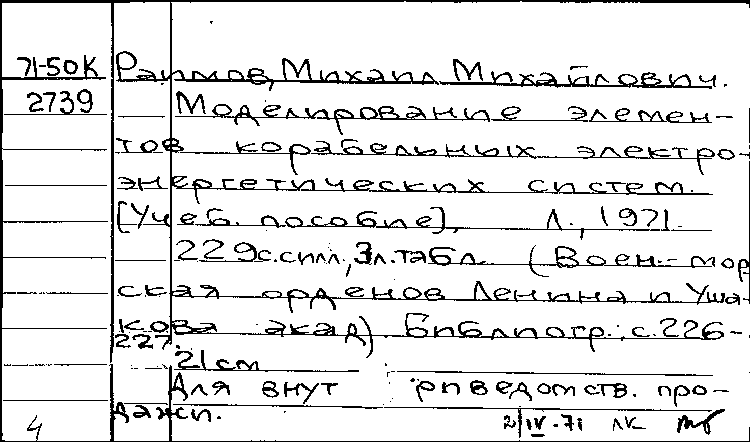 71-50К Раимов, Михаил Михайлович.
2739 Моделирование элемен-
тов корабельных электро-
энергетических систем.
[Учеб. пособие], Л., 1971.
229с.силл., 3л.табл. (Воен.-мор
ская орденов Ленина и Уша-
кова акад). Библиогр.: с.226-
227.
21 см
Для внут риведомств. про-
дажи.
4 2/IV-71 ЛК